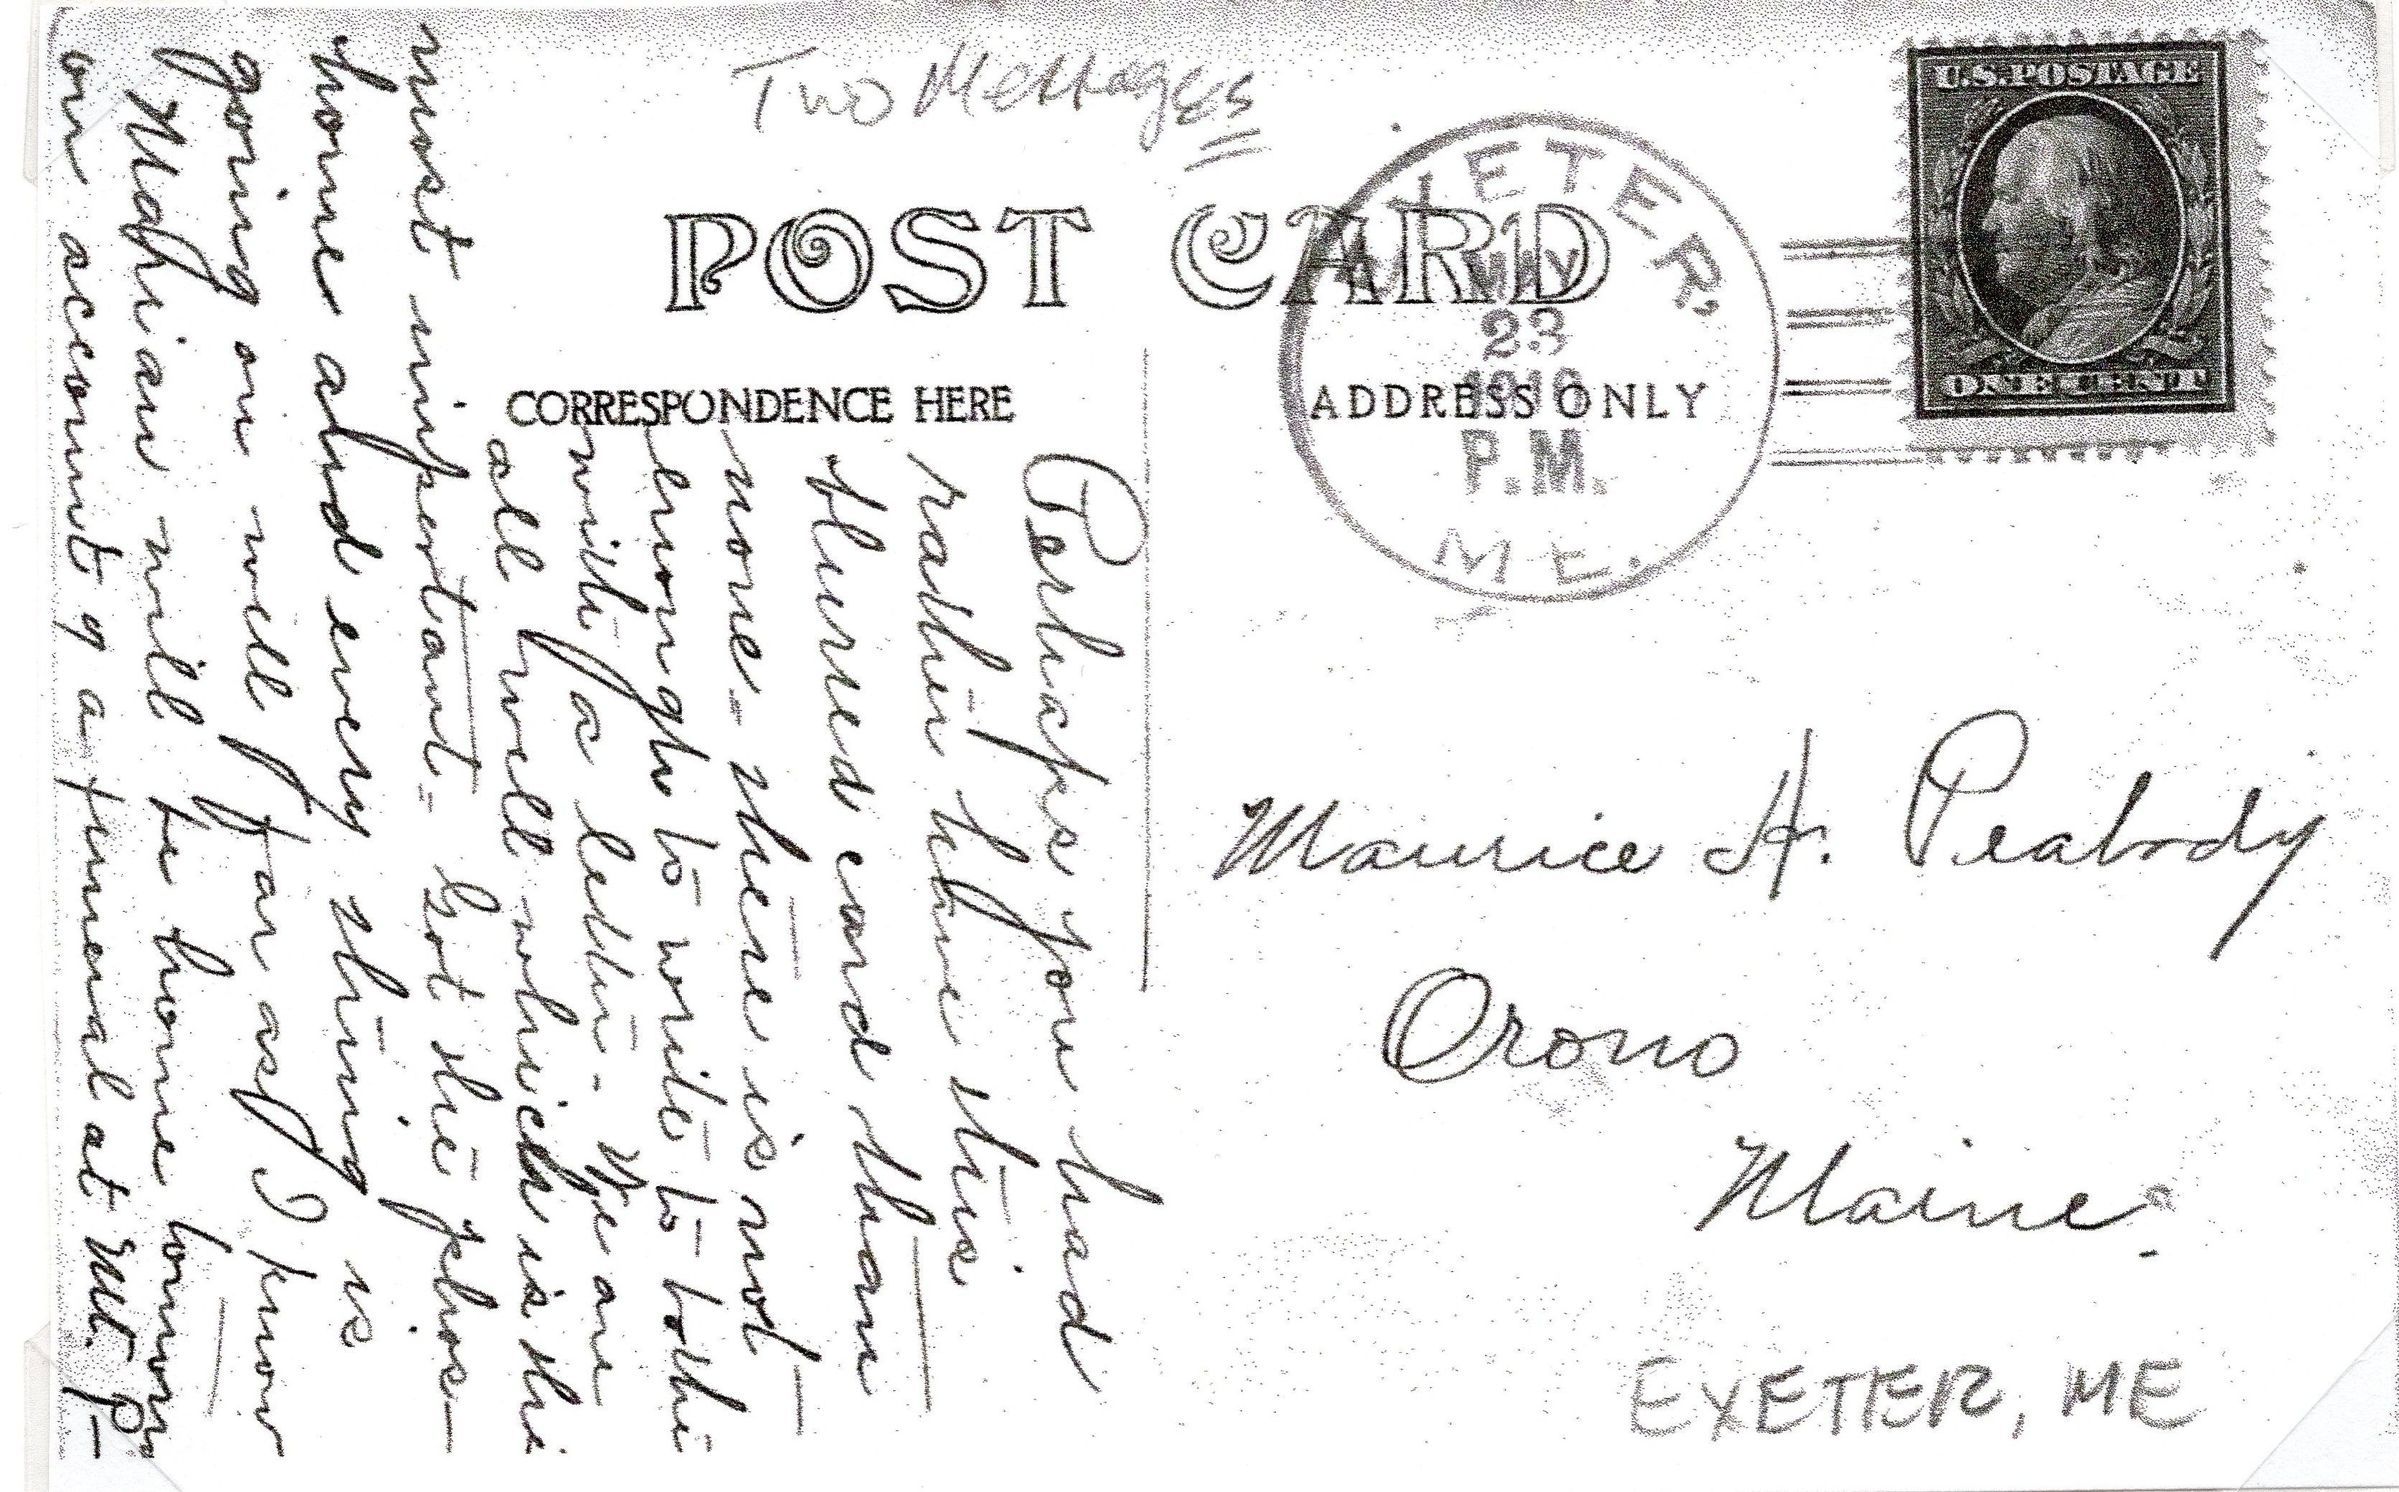 Two Messages
U.S. POSTAGE
ONE CENT
POST CARD
EXETER,
MAY
23
1910
P.M.
ME.
CORRESPONDENCE HERE
ADDRESS ONLY
Perhaps you had
rather have this
blurred card than
none - there is not
enough to write to bother
with a letter - We are
all well which is the
most important - Got the phos-
home and every thing is
going on well far as I know
Marian will be home tomorr
on account of a funeral at Mt. P-
Maurice H. Peabody
Orono
Maine.
EXETER, ME